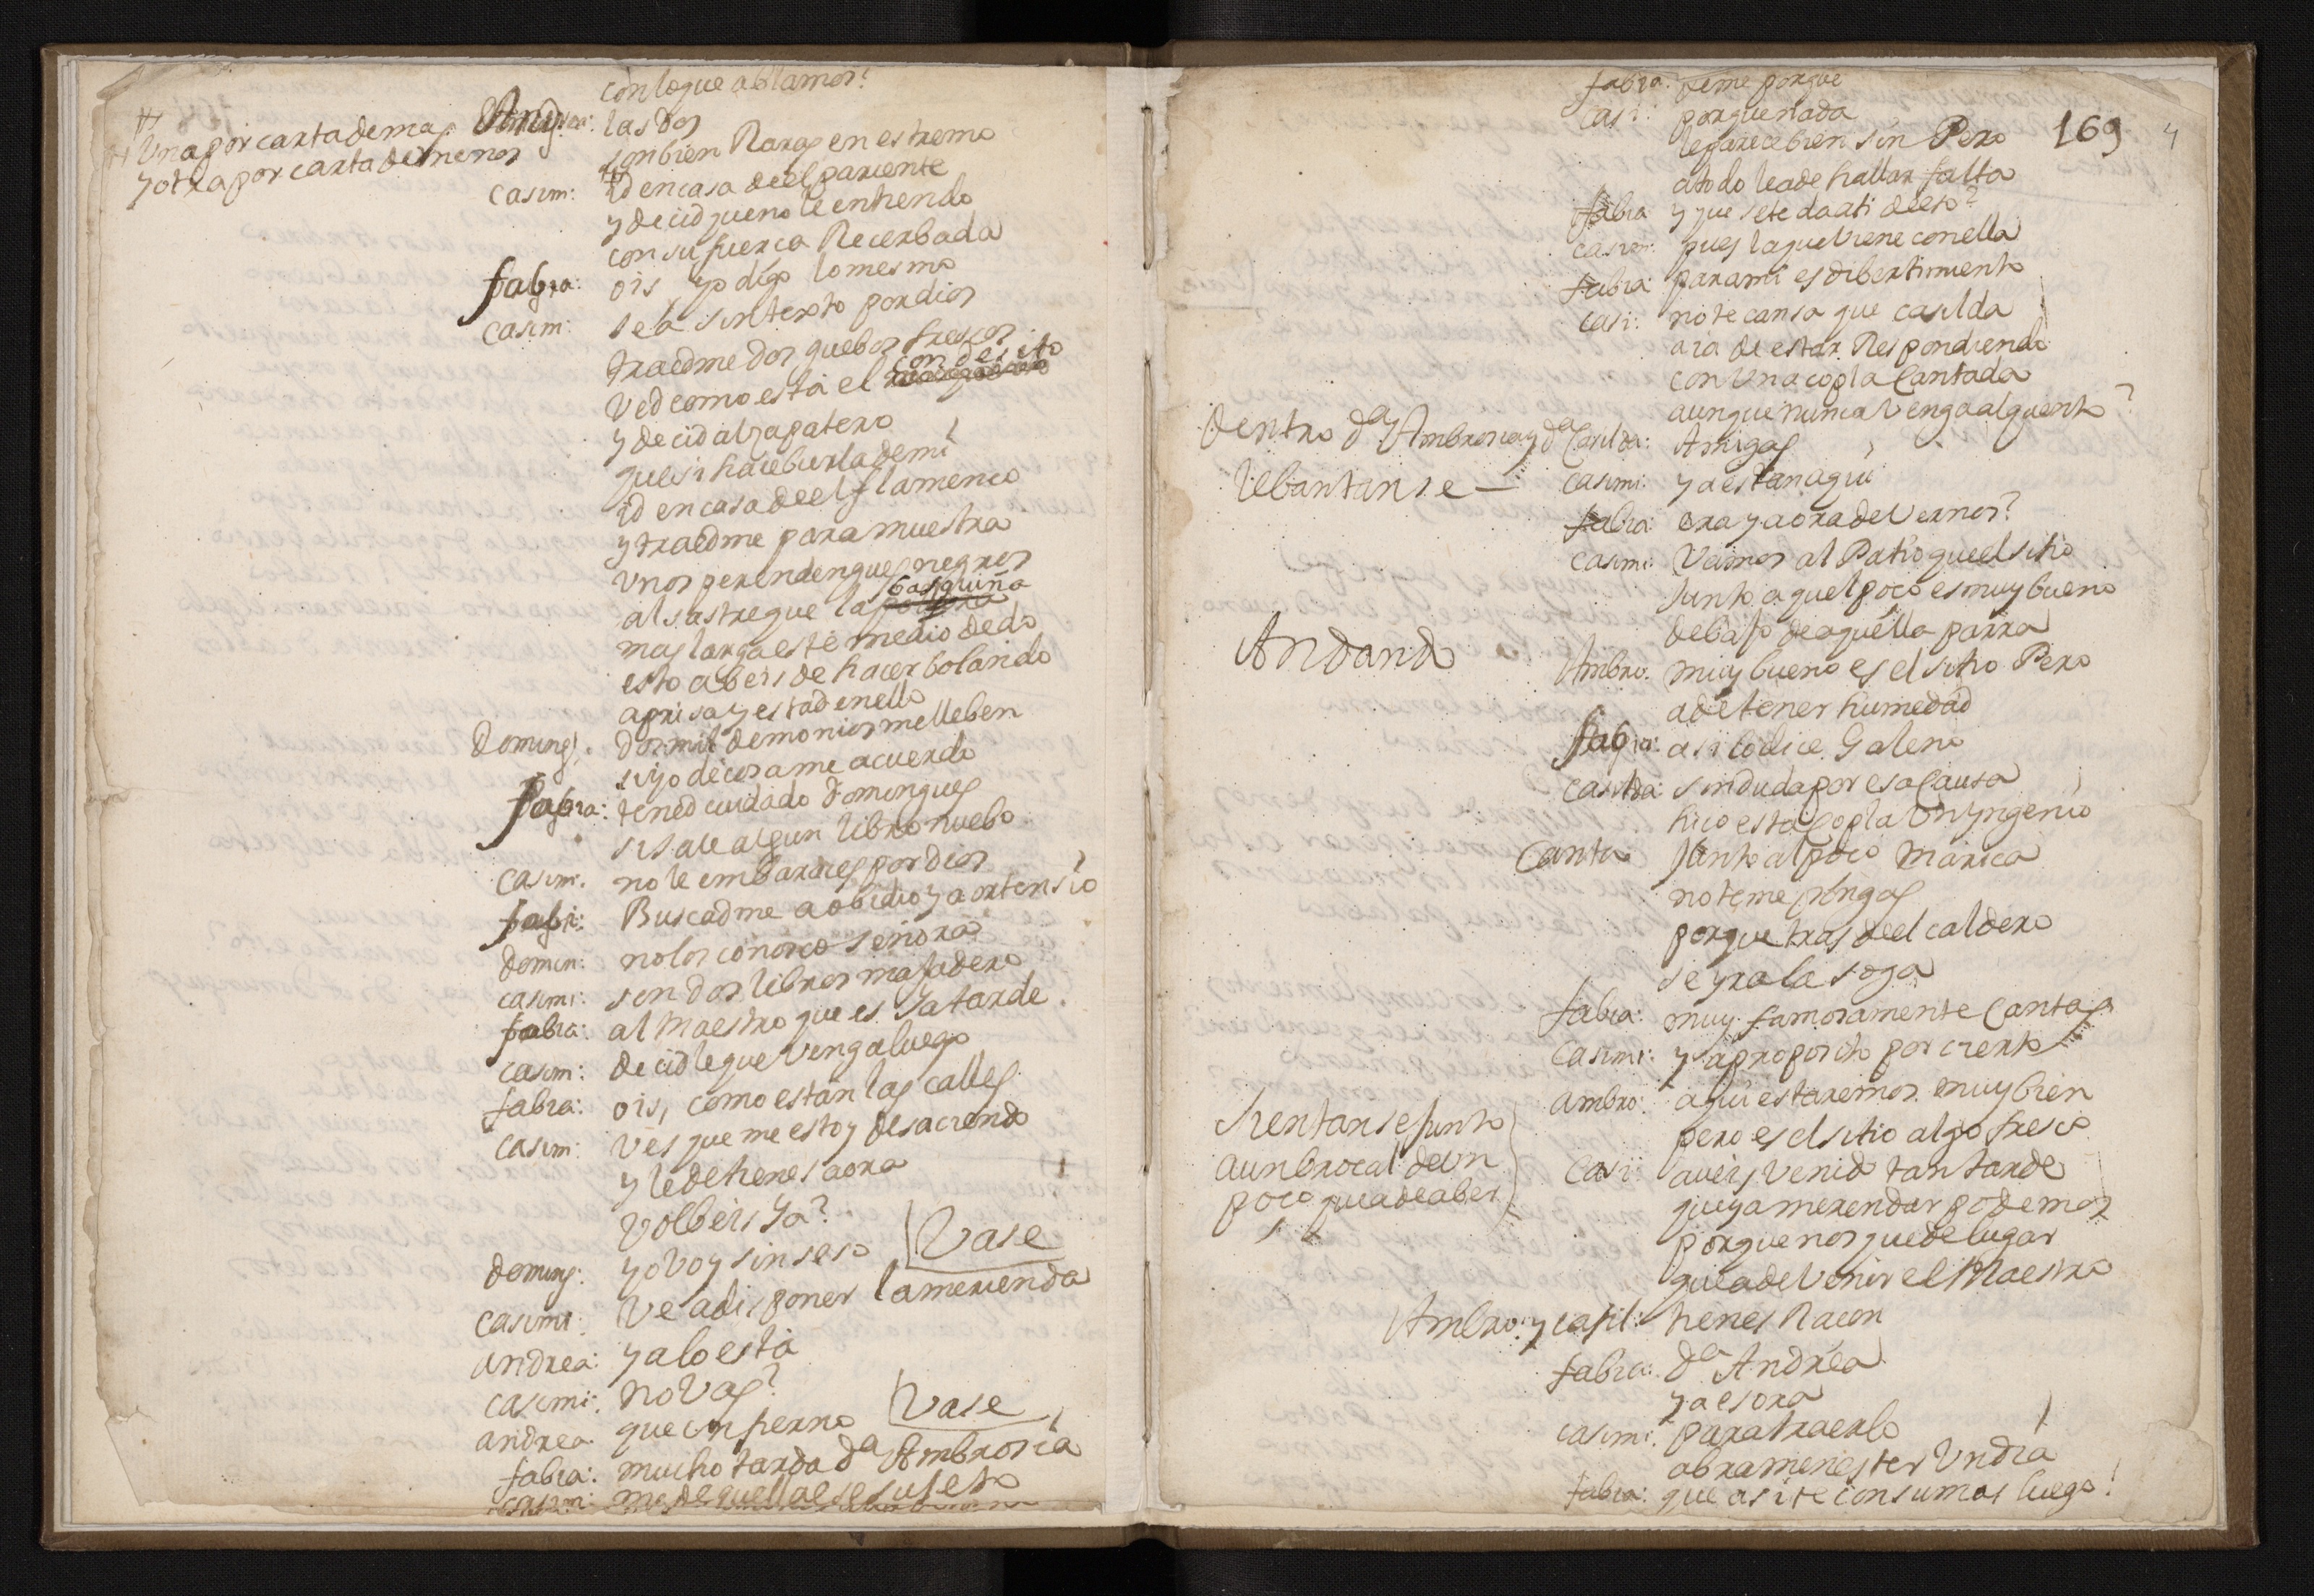 con loque ablamos?
# Una por carta de mas
y otra por carta de menos
Andrea: las dos
son bien Raras en estremo
casim: # id en casa de el pariente
y decid que no le entiendo
con su fuerca Recerbada
fabia: ois yo digo lo mesmo
casim: sea sintexto por dios
traedme dos guebos frescos
ved como esta el condesito
y decid al zapatero
que si hace burla de mi
id en casa de el flamenco
y traedme para muestra
unos perendengues negros
al sastre que la basquiña
mas larga este medio dedo
esto abeis de hacer bolando
aprisa y estad en ello
Doming: Dos mil demonios me lleben
si yo de cosa me acuerdo
fabia: tened cuidado Domingues
si sale algun libro nuebo
casim: no le embaraces por dios
fabi: Buscadme a obidio y a ortensio
domin: no los conozco señora
casimi: son dos libros majadero
fabia: al Maestro que es ya tarde
casim: decidle que venga luego
fabia: ois, como estan las calles
casim: ves que me estoy desaciendo
y le detienes aora
volbeis ya?
doming: yo voy sin seso Vase
casimi: ve a disponer la merienda
andrea: ya lo esta
casimi: no vas?
andrea: que infierno Vase
fabia: mucho tarda Dª Ambrosia
fabia: deme porque
casi: porque nada
le parece bien sin Pero
a todo le a de hallar falta
169 4
fabia: y que se te da a ti de eso?
casim: pues la que viene con ella
fabia: para mi es dibertimiento
casi: no te cansa que casilda
aia de estar Respondiendo
con una copla Cantada
aunque nunca venga al quento?
Dentro Dª Ambrosia y Dª Casilda: Amigas
lebantanse— casimi: ya estan aqui
fabia: era ya ora de vernos?
casimi: Vamos al Patio que el sitio
Junto aquel poco es muy bueno
debajo de aquella parra
Andando Ambro: muy bueno es el sitio Pero
a de tener humedad
fabia: asi lo dice Galeno
casilda: sin duda por esa Causa
hico esta Copla un yngenio
Canta Junto al poco Marica
no te me pongas
porque tras de el caldero
se yra la soga
fabia: muy famosamente Cantas
casimi: y a proposito por cierto
ambro: aqui estaremos muy bien
pero es el sitio algo fresco
sientanse Junto
a un brocal de un
poco que a de aber
Casi: aveis venido tan tarde
que ya merendar podemos
porque nos quede lugar
que a de venir el Maestro
Ambro: y casil: tienes Racon
fabia: Dª Andrea
ya es ora
casimi: para traerlo
abra menester un dia
fabia: que asi te consumas luego!